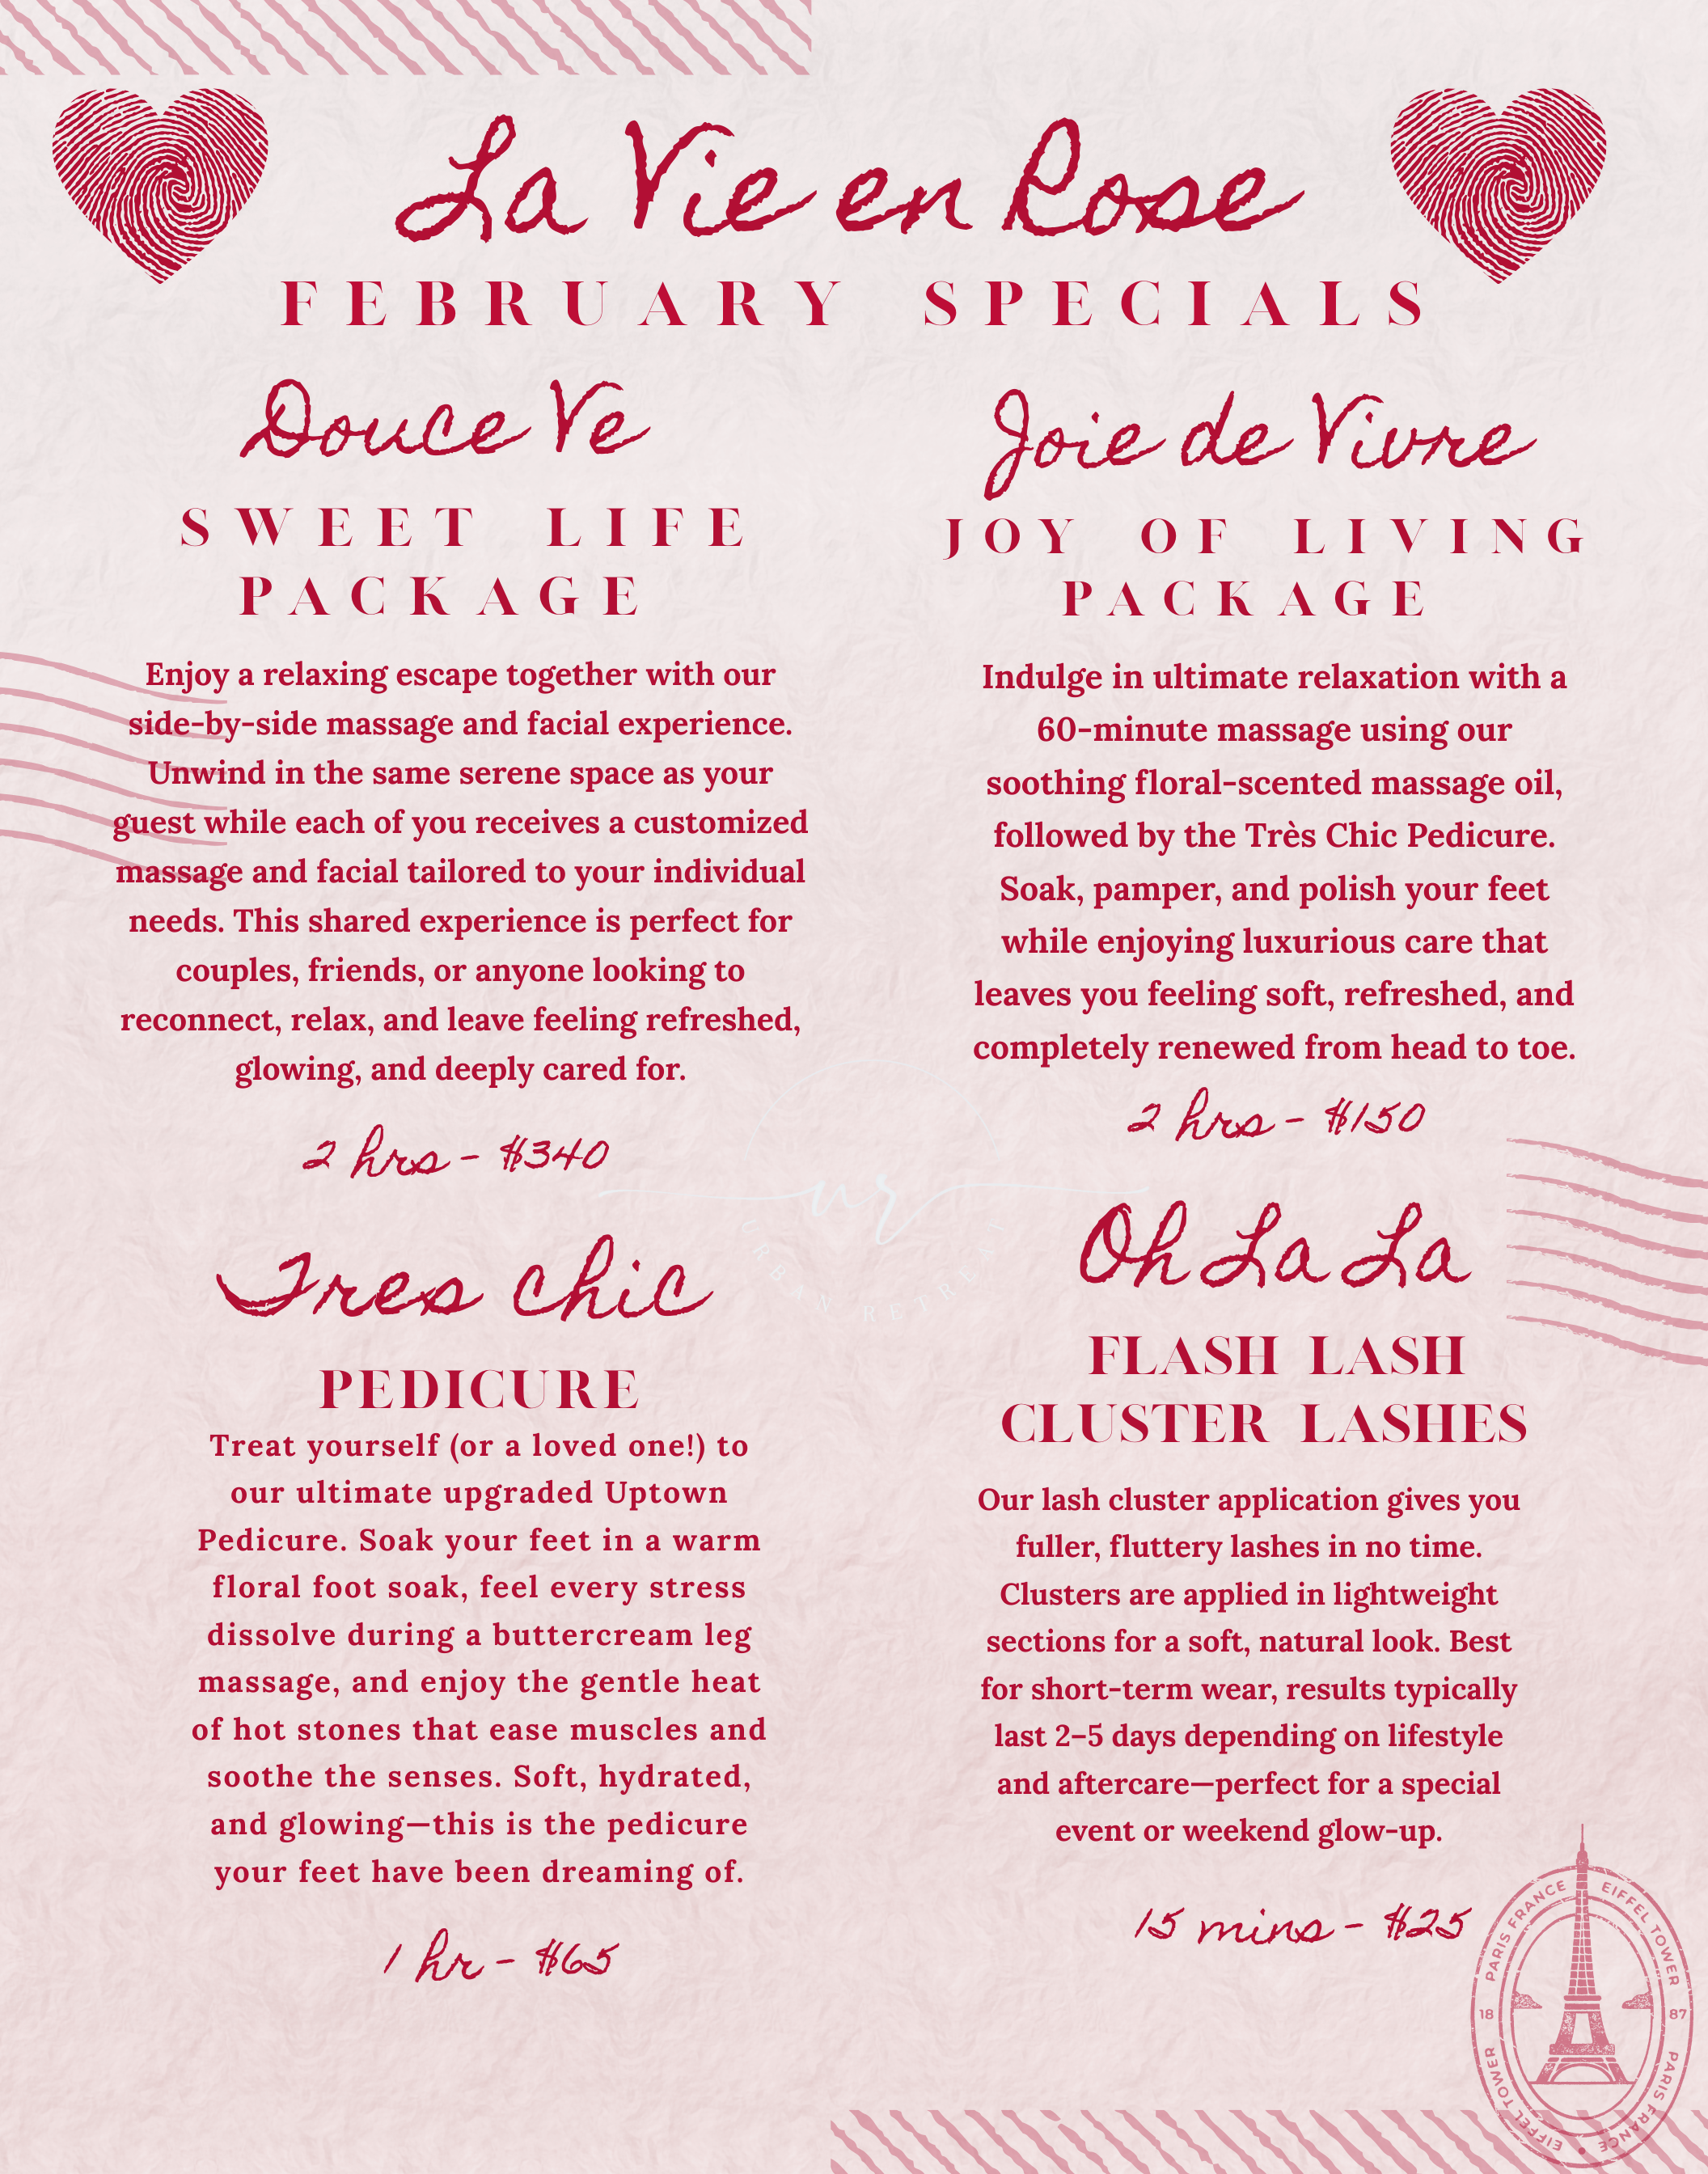 La Vie en Rose
FEBRUARY SPECIALS
Douce Ve
SWEET LIFE
PACKAGE
Enjoy a relaxing escape together with our
side-by-side massage and facial experience.
Unwind in the same serene space as your
guest while each of you receives a customized
massage and facial tailored to your individual
needs. This shared experience is perfect for
couples, friends, or anyone looking to
reconnect, relax, and leave feeling refreshed,
glowing, and deeply cared for.
2 hrs - $340
Joie de Vivre
JOY OF LIVING
PACKAGE
Indulge in ultimate relaxation with a
60-minute massage using our
soothing floral-scented massage oil,
followed by the Très Chic Pedicure.
Soak, pamper, and polish your feet
while enjoying luxurious care that
leaves you feeling soft, refreshed, and
completely renewed from head to toe.
2 hrs - $150
Tres chic
PEDICURE
Treat yourself (or a loved one!) to
our ultimate upgraded Uptown
Pedicure. Soak your feet in a warm
floral foot soak, feel every stress
dissolve during a buttercream leg
massage, and enjoy the gentle heat
of hot stones that ease muscles and
soothe the senses. Soft, hydrated,
and glowing—this is the pedicure
your feet have been dreaming of.
1 hr - $65
Oh La La
FLASH LASH
CLUSTER LASHES
Our lash cluster application gives you
fuller, fluttery lashes in no time.
Clusters are applied in lightweight
sections for a soft, natural look. Best
for short-term wear, results typically
last 2–5 days depending on lifestyle
and aftercare—perfect for a special
event or weekend glow-up.
15 mins - $25
ur
URBAN RETREAT
PARIS FRANCE EIFFEL TOWER
18 87
EIFFEL TOWER • PARIS FRANCE